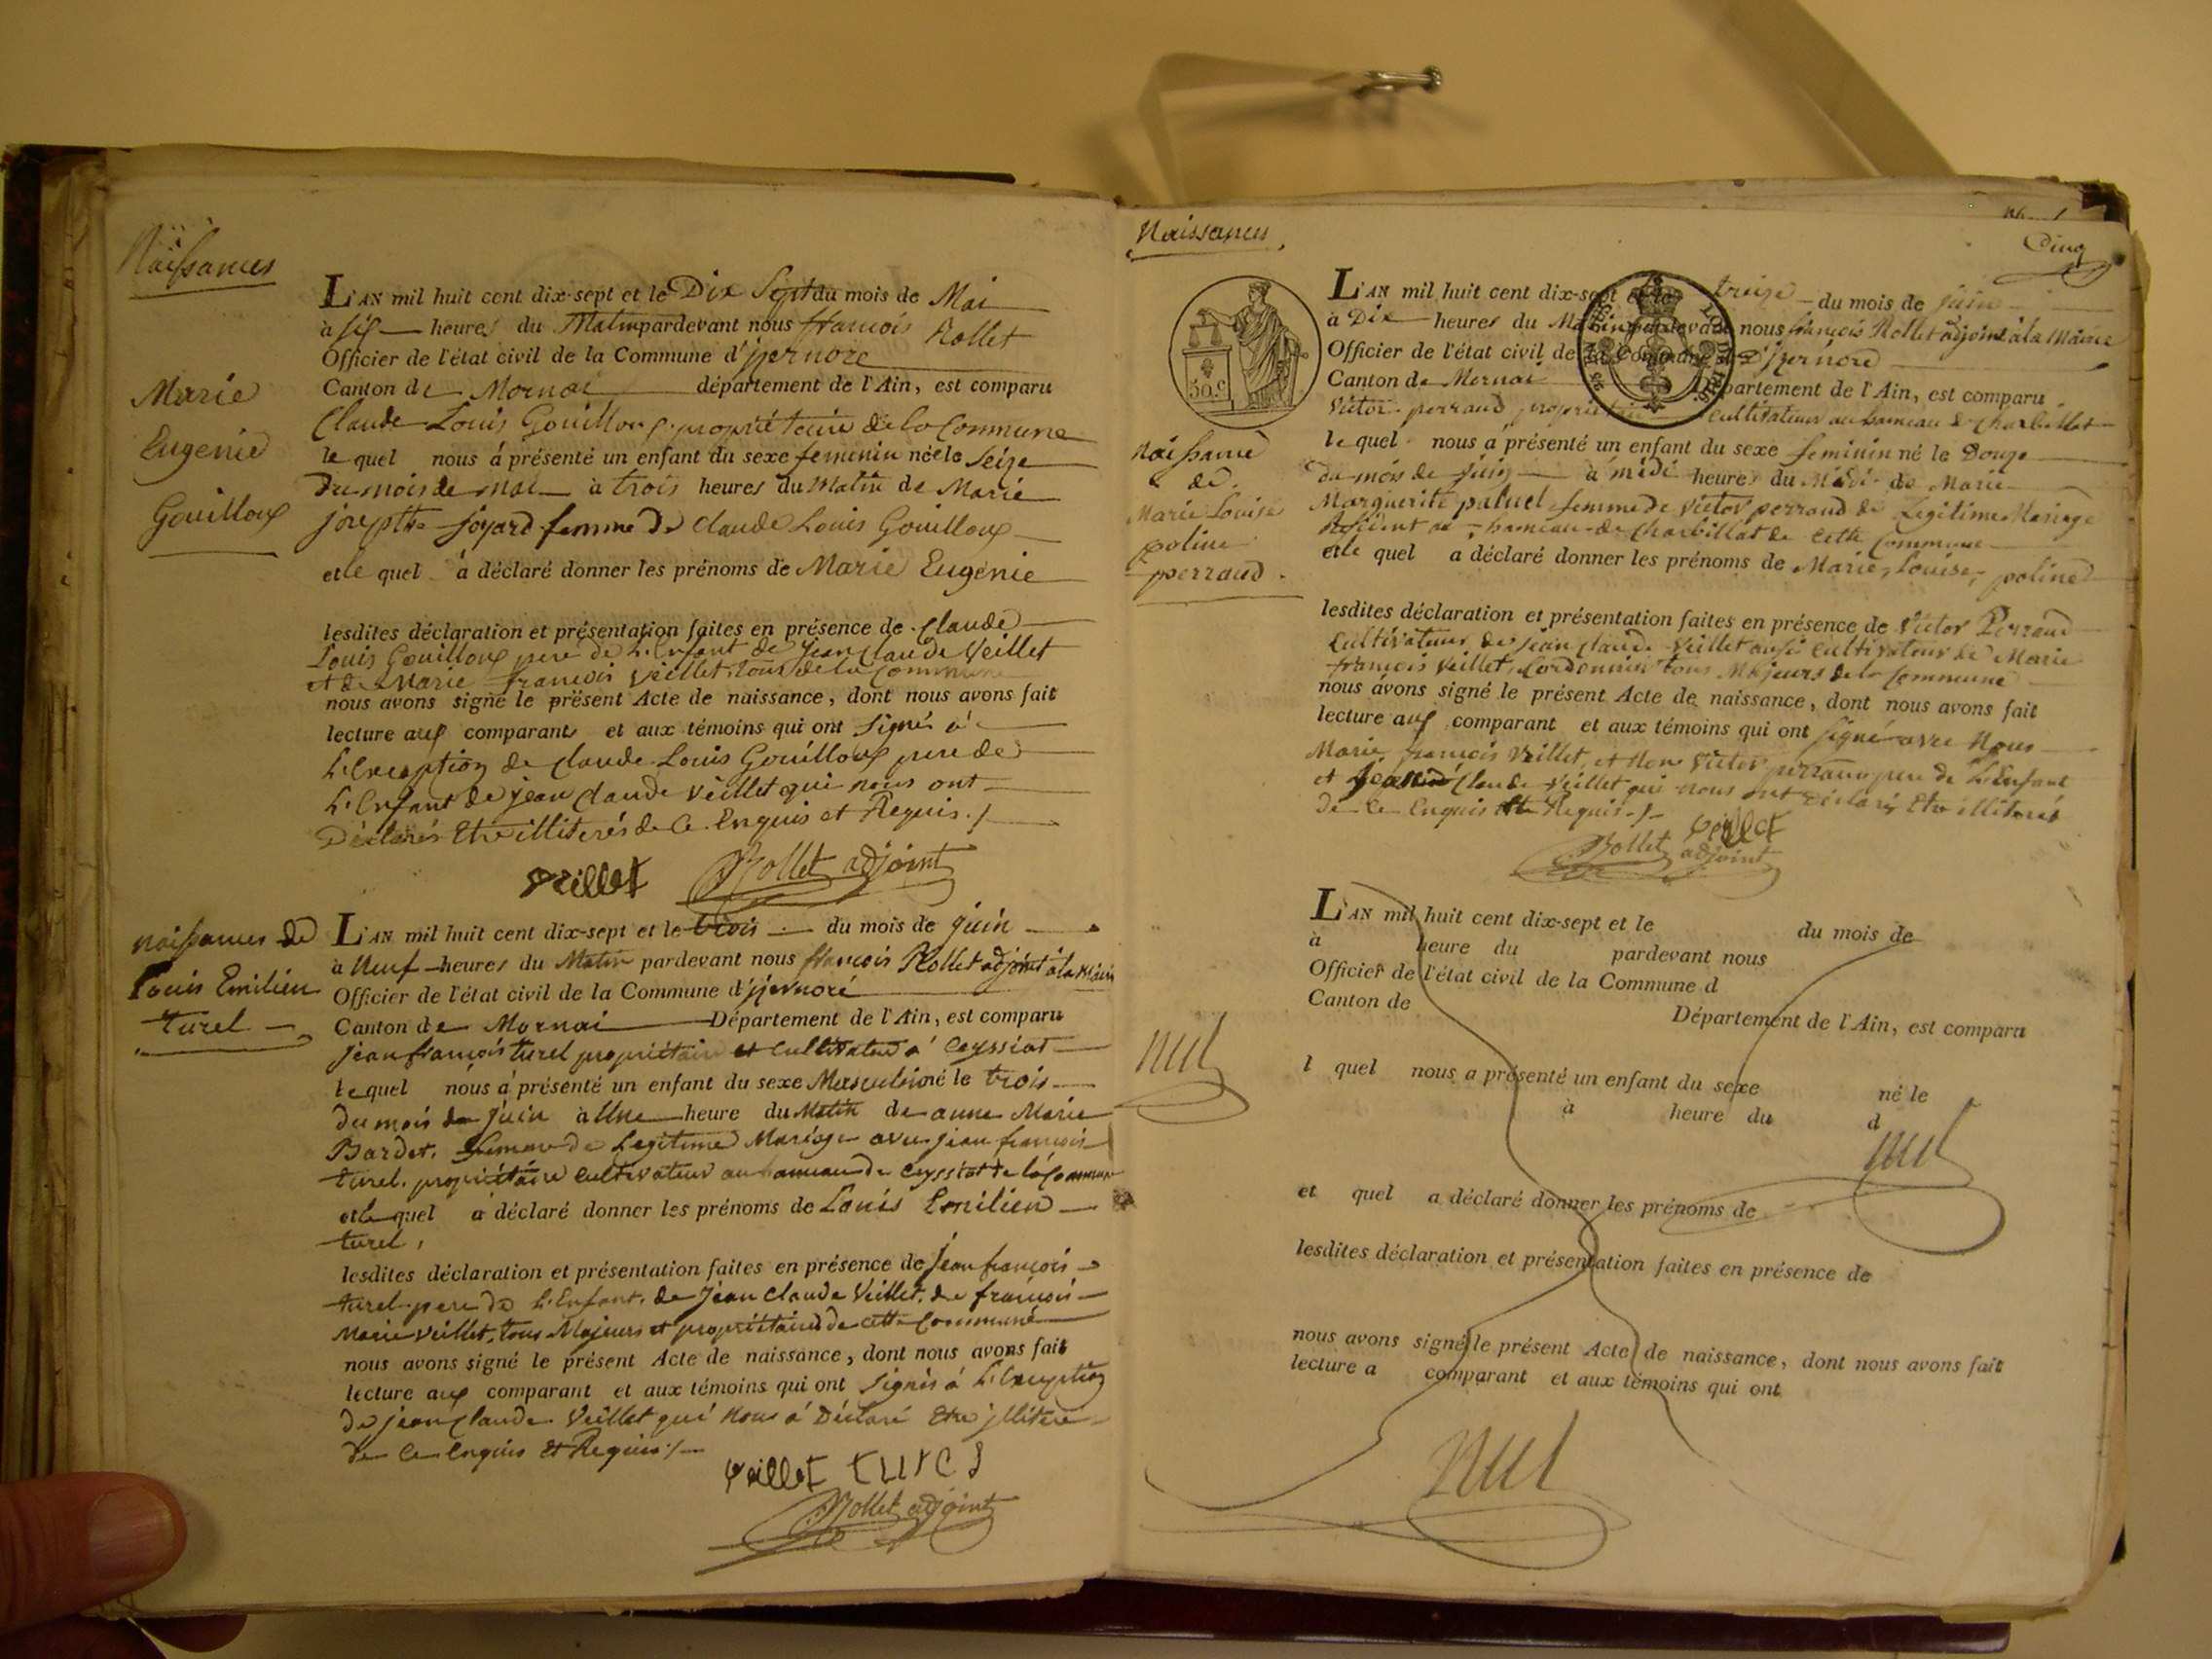 Naissances
Marie
Eugenie
Gouilloux
L'AN mil huit cent dix-sept et le Dix Sept du mois de Mai
à six heures du Matin pardevant nous françois Rollet
Officier de l'état civil de la Commune d'jzernore
Canton de Mornai département de l'Ain, est comparu
Claude Louis Gouilloux proprietaire de la Commune
le quel nous à présenté un enfant du sexe feminin néele Seize
Du mois de mai à trois heures du Matin de Marie
josepthe joyard femme De Claude Louis Gouilloux
et le quel à déclaré donner les prénoms de Marie Eugenie
lesdites déclaration et présentation faites en présence de Claude
Louis Gouilloux pere de L'Enfant de Jean Claude Veillet
et de Marie françois Veillet tous de la Commune
nous avons signé le présent Acte de naissance, dont nous avons fait
lecture aux comparants et aux témoins qui ont Signés à
L'Exception de Claude Louis Gouilloux pere de
L'Enfant de jean Claude Veillet qui nous ont
Déclarés Etre illiterés de ce Enquis et Requis./
Veillet Rollet adjoint
naissances de
Louis Emilien
turel
L'AN mil huit cent dix-sept et le trois du mois de juin
à Neuf heures du Matin pardevant nous françois Rollet adjoint à la Mairie
Officier de l'état civil de la Commune d'jzernore
Canton de Mornai Département de l'Ain, est comparu
jean françois turel propriétaire et Cultivateur à Ceyssiat
le quel nous à présenté un enfant du sexe Masculin né le trois
du mois de juin à Une heure du Matin de anne Marie
Bardet, femme de Legitime Mariage avec jean françois
turel, propriétaire cultivateur au hameau de Ceyssiat de la Commune
et le quel à déclaré donner les prénoms de Louis Emilien
turel,
lesdites déclaration et présentation faites en présence de jean françois
turel pere de L'Enfant, de Jean Claude Veillet, de françois
Marie Veillet, tous Majeurs et propriétaires de cette Commune
nous avons signé le présent Acte de naissance, dont nous avons fait
lecture aux comparant et aux témoins qui ont Signés à L'Exception
de jean Claude Veillet qui Nous à Déclaré Etre jlliteré
de ce Enquis et Requis./
Veillet turel
Rollet adjoint
Naissances
Cinq
50 c
Naissance
de
Marie Louise
poline
perraud
L'AN mil huit cent dix-sept et le treize du mois de juin
à Dix heures du Matin pardevant nous françois Rollet adjoint à la Mairie
Officier de l'état civil de la Commune d'jzernore
Canton de Mornai Département de l'Ain, est comparu
Victor perraud proprietaire cultivateur au hameau de Charbillat
le quel nous à présenté un enfant du sexe feminin né le Douze
du mois de juin à midi heures du Midi de Marie
Marguerite paluel femme de Victor perraud de Legitime Mariage
Résident au hameau de Charbillat de cette Commune
et le quel à déclaré donner les prénoms de Marie, Louise, poline
lesdites déclaration et présentation faites en présence de Victor Perraud
Cultivateur, de Jean Claude Veillet aussi cultivateur de Marie
françois Veillet, Cordonnier tous Majeurs de la Commune
nous avons signé le présent Acte de naissance, dont nous avons fait
lecture aux comparant et aux témoins qui ont signé avec Nous
Marie françois Veillet, et Non Victor perraud pere de L'Enfant
et Claude Veillet qui nous ont Déclarés Etre illiterés
de ce Enquis Requis./
Veillet
Rollet adjoint
nul
L'AN mil huit cent dix-sept et le du mois de
à heure du pardevant nous
Officier de l'état civil de la Commune d
Canton de Département de l'Ain, est comparu
l quel nous a présenté un enfant du sexe né le
à heure du d
nul
et quel a déclaré donner les prénoms de
lesdites déclaration et présentation faites en présence de
nous avons signé le présent Acte de naissance, dont nous avons fait
lecture a comparant et aux témoins qui ont
nul